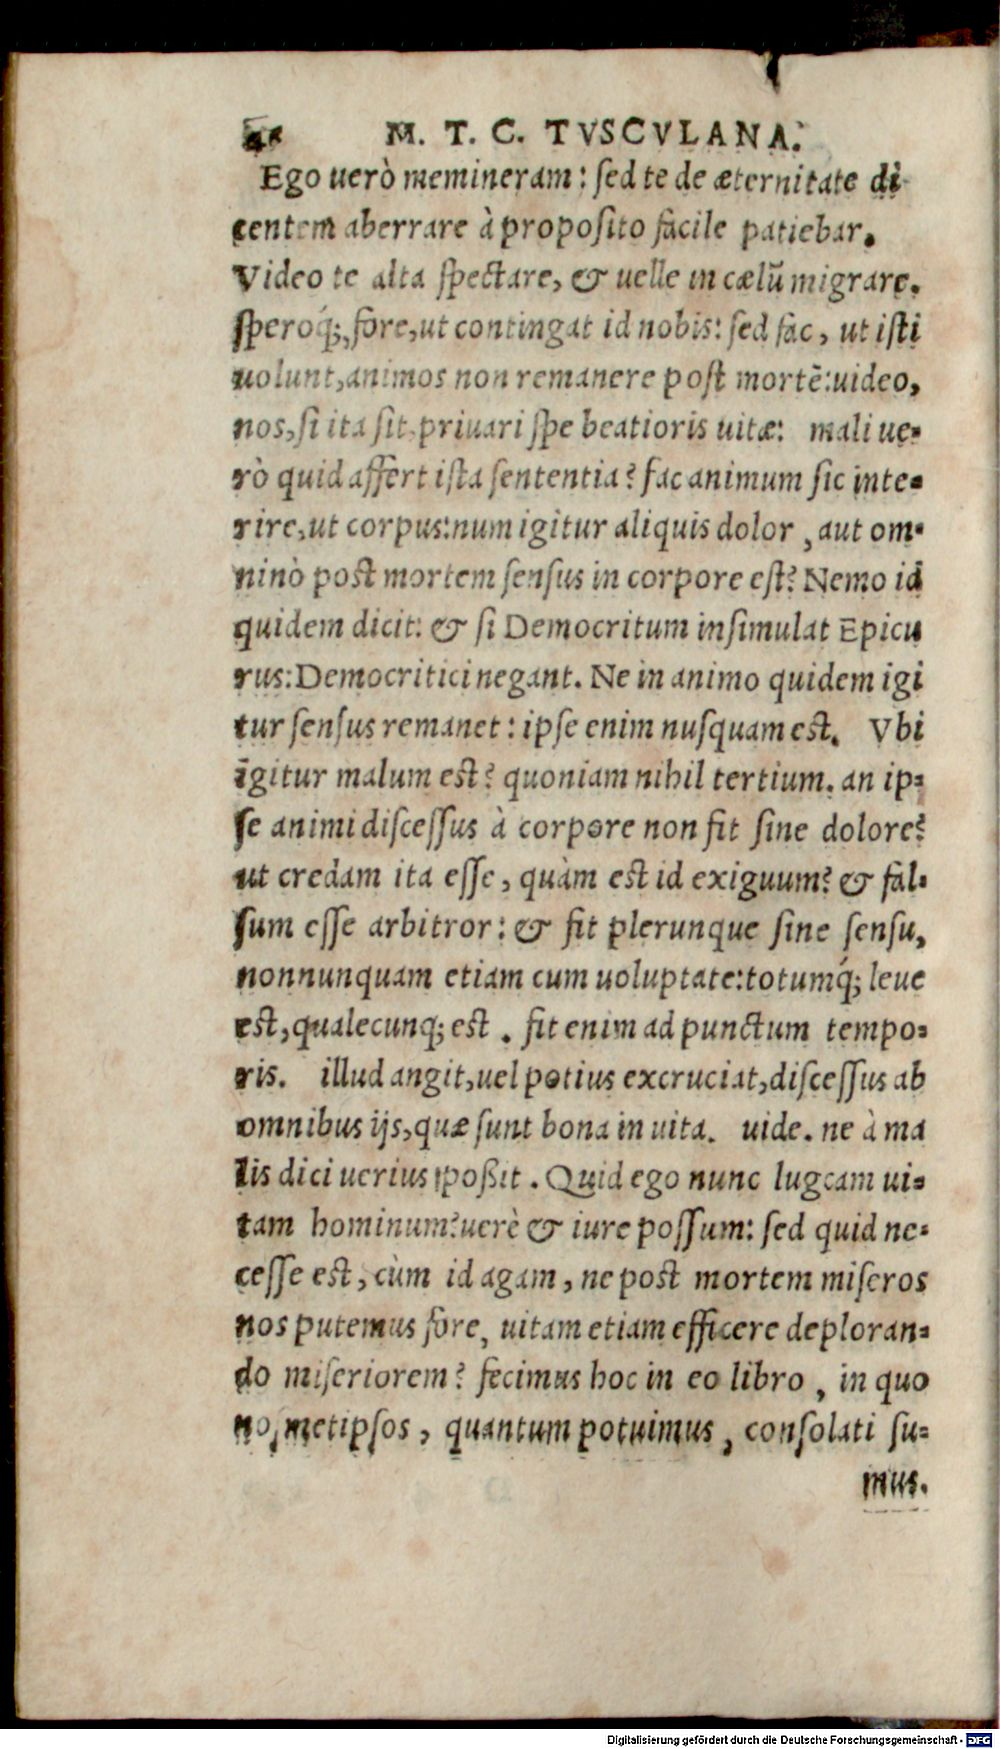 M. T. C. TVSCVLANA.
Ego uerò memineram: sed te de æternitate di
centem aberrare à proposito facile patiebar.
Video te alta spectare, & uelle in cælū migrare.
speroq́;, fore, ut contingat id nobis: sed fac, ut isti
uolunt, animos non remanere post mortē: uideo,
nos, si ita sit, priuari spe beatioris uitæ: mali ue-
rò quid affert ista sententia? fac animum sic inte-
rire, ut corpus: num igitur aliquis dolor, aut om-
ninò post mortem sensus in corpore est? Nemo id
quidem dicit: & si Democritum insimulat Epicu
rus: Democritici negant. Ne in animo quidem igi
tur sensus remanet: ipse enim nusquam est. Vbi
igitur malum est? quoniam nihil tertium. an ip-
se animi discessus à corpore non fit sine dolore?
ut credam ita esse, quàm est id exiguum? & fal-
sum esse arbitror: & fit plerunque sine sensu,
nonnunquam etiam cum uoluptate: totumq́; leue
est, qualecunq; est. fit enim ad punctum tempo-
ris. illud angit, uel potius excruciat, discessus ab
omnibus ijs, quæ sunt bona in uita. uide. ne à ma
lis dici uerius possit. Quid ego nunc lugeam ui-
tam hominum? uerè & iure possum: sed quid ne-
cesse est, cùm id agam, ne post mortem miseros
nos putemus fore, uitam etiam efficere deploran-
do miseriorem? fecimus hoc in eo libro, in quo
nosmetipsos, quantum potuimus, consolati su-
mus.
Digitalisierung gefördert durch die Deutsche Forschungsgemeinschaft - DFG